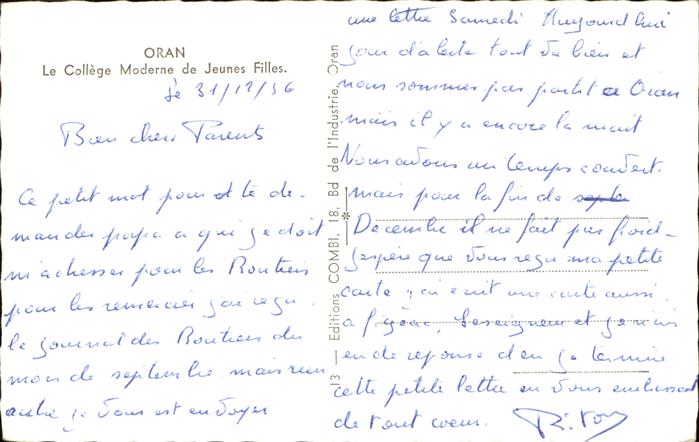 ORAN
Le Collège Moderne de Jeunes Filles.
le 31/12/56
Bien chers Parents
Ce petit mot pour te de-
mander papa a qui je doit
m'adresser pour les Routiers
pour les remercier j'ai reçu
le journal des Routiers du
mois de septembre mais rien
autre je vous est envoyer
une lettre Samedi Aujourd'hui
jour d'alerte tout va bien et
nous sommes pas partit a Oran
mais il y a encore la nuit
Nous avons un temps couvert.
mais pour la fin de septe
Décembre il ne fait pas froid-
J'espère que vous reçu ma petite
carte j'ai écrit une carte aussi
a et je suis
en de reponse d'eu je termine
cette petite lettre en vous embrassant
de tout coeur.
13 — Editions COMBI, 18, Bd de l'Industrie, Oran